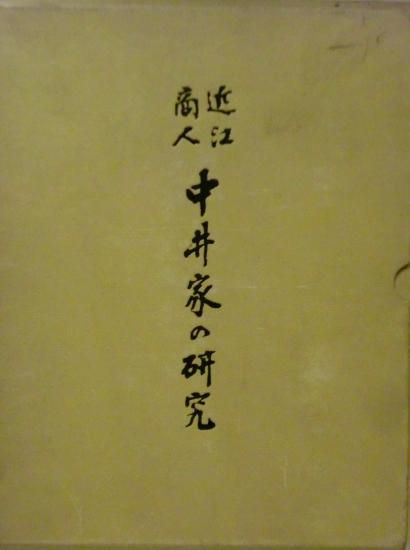 近江
商人
中井家の研究